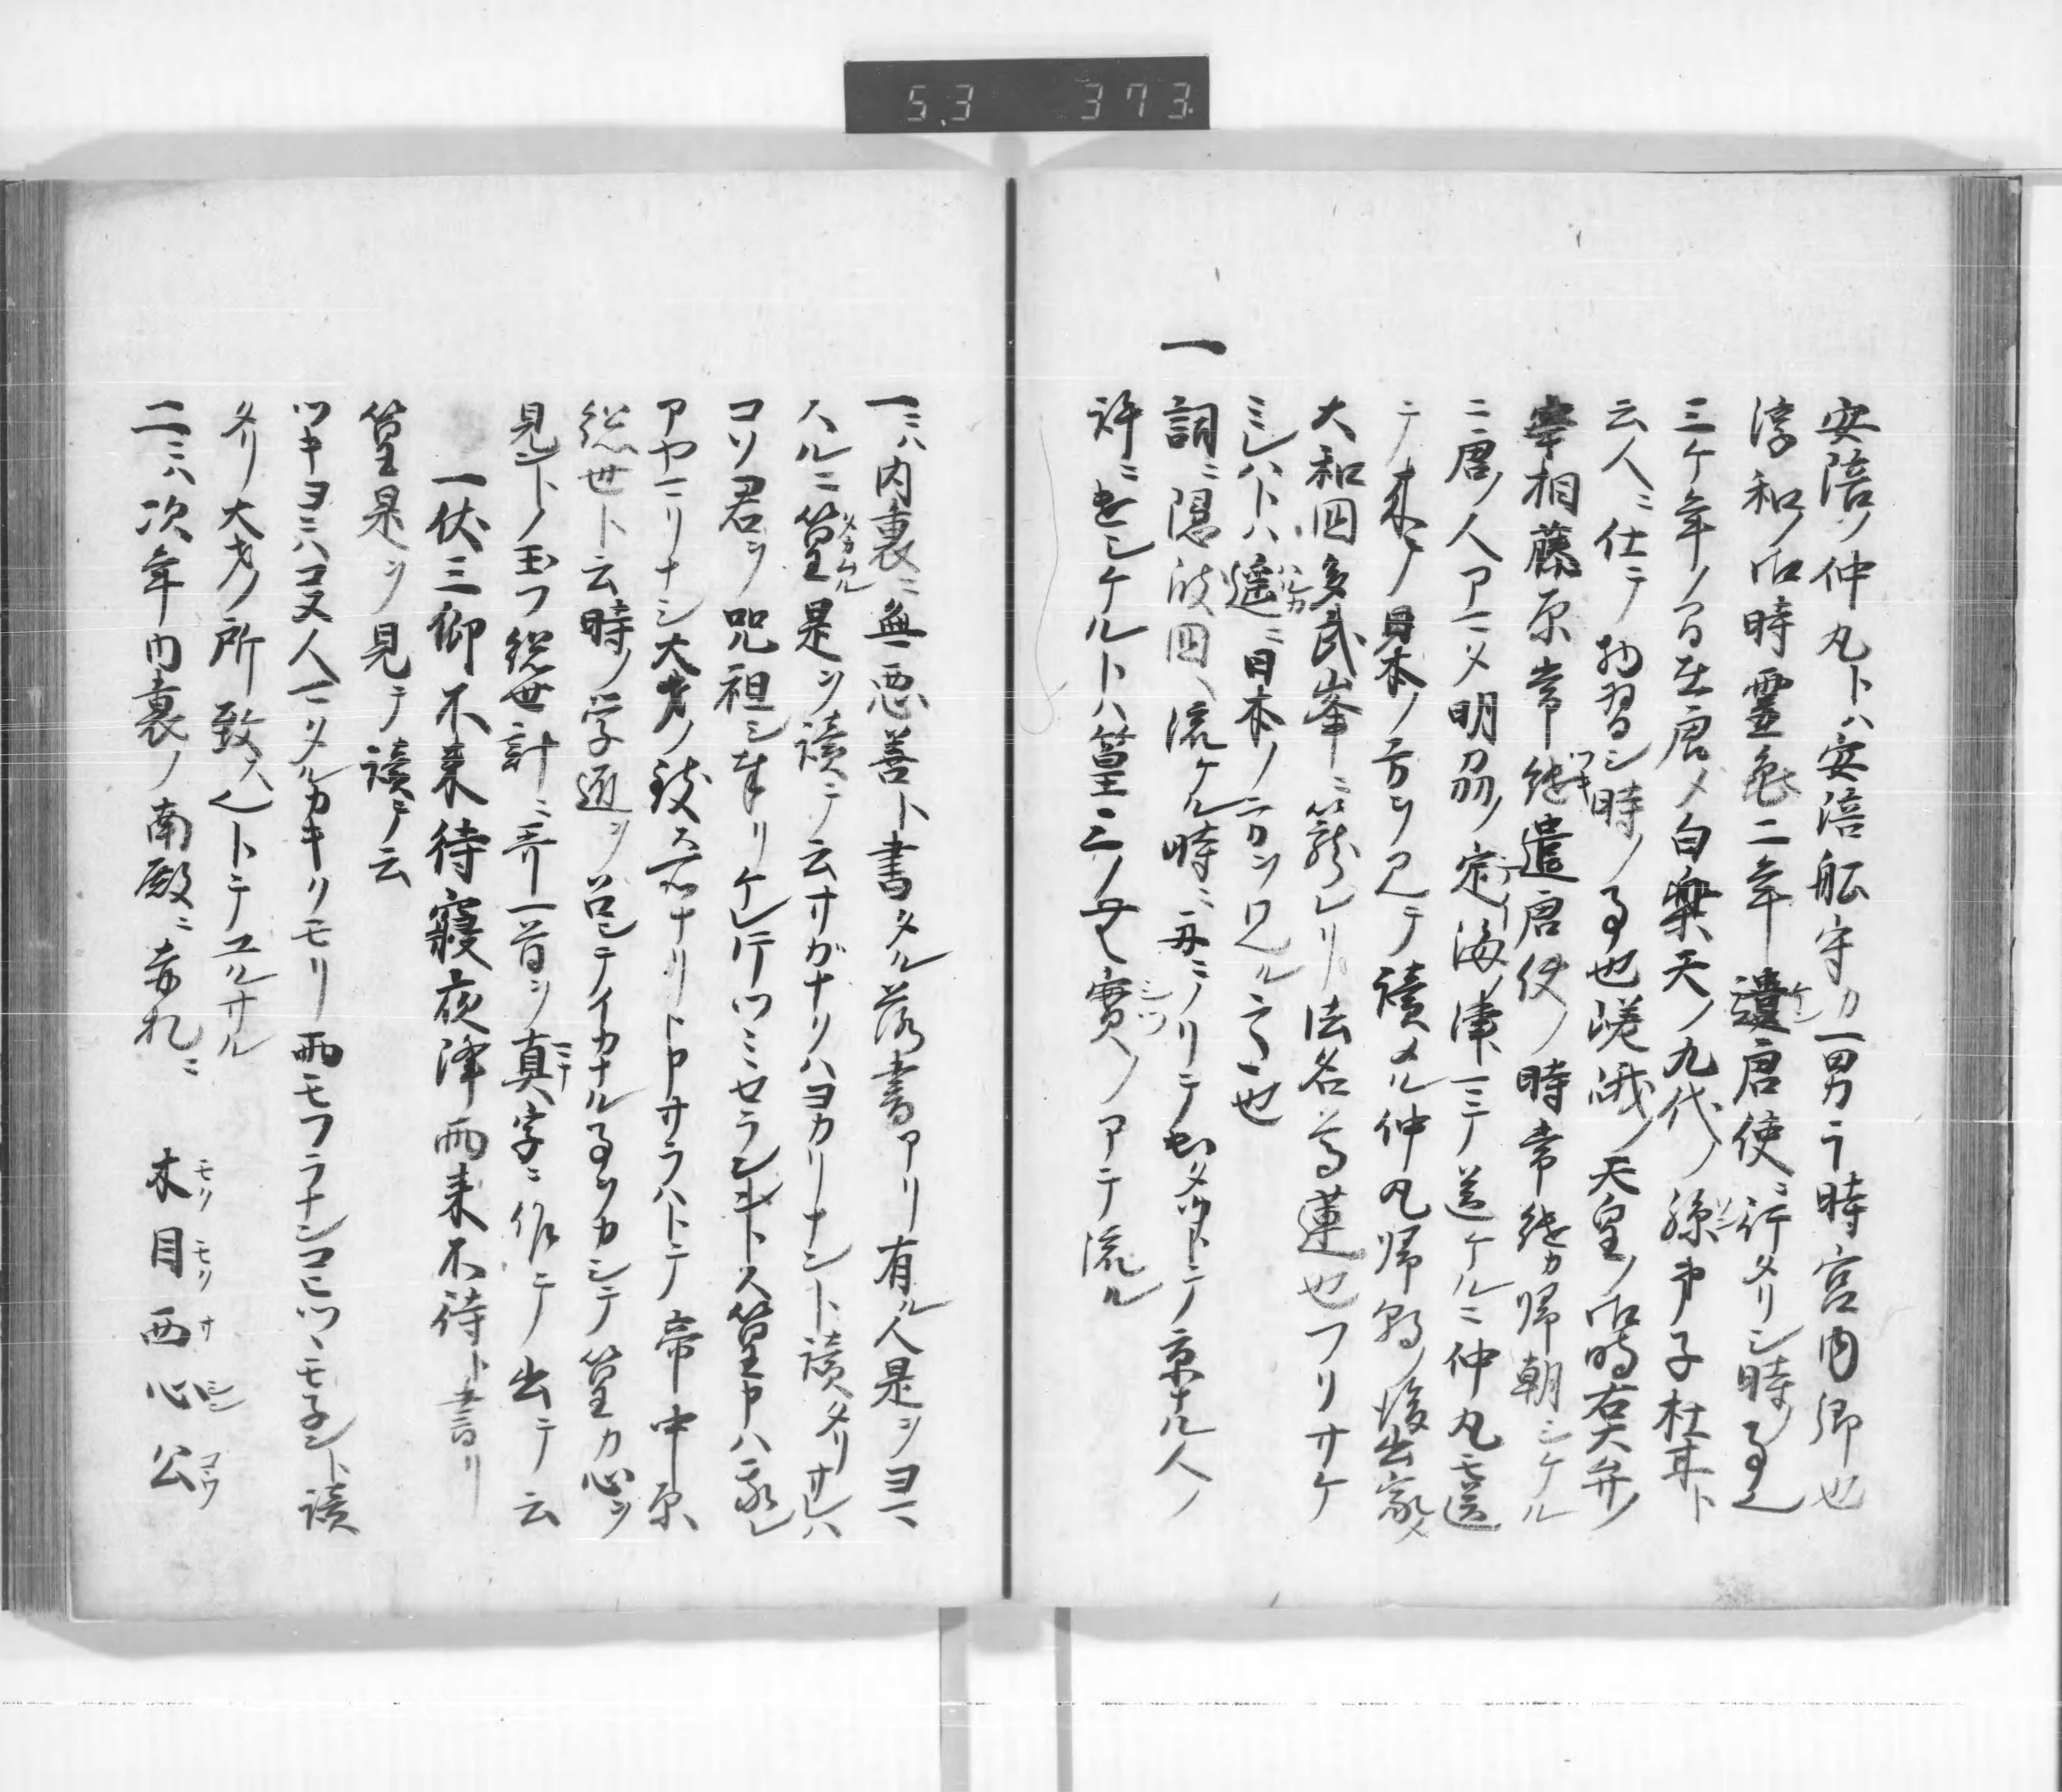 5.3 373.
安陪ノ仲丸トハ安陪舩守カ一男ラ時宮内卿也
淳和ノ御時霊亀二年遣唐使ニ行タリシ時ノ事也
三ケ年ノ間在唐メ白楽天ノ九代ノ孫弟子杜
云人ニ仕テ物習シ時ノ事也嵯峨ノ天皇ノ御時右大弁ノ
宰相藤原常継遣唐使ノ時常継カ帰朝シケル
ニ唐ノ人アマタ明州ノ定海ノ津マテ送ケルニ仲丸モ送
テ来テ日本ノ方ヲ見テ読メル仲丸帰朝ノ後出家メ
大和国多武峯ニ籠レリ法名尊蓮也フリサケ
ミレハトハ遥ニ日本ノ方ヲ見ル言也
一詞ニ隠岐国ヘ流ケル時ニ舟ニノリテ出タツトテ京ナル人ノ
許ニ遣シケルトハ篁ニ三ノ無実ノアテ流ル
一ニハ内裏ニ無悪善ト書タル落書アリ有ル人是ヲヨマ
スルニ篁是ヲ読テ云サガナリハヨカリナント読タリサレハ
コソ君ヲ咒祖シ奉リケレトテツミセラレントス篁申ハ我レ
アヤマリナシ大才ノ致ス所ナリト申サラハトテ帝中原
総世ト云時ノ学匠ヲ召シテイカナル事ヲカシテ篁カ心ヲ
見ントノ玉フ総世計ニ哥一首ヲ真字ニ作テ出テ云
一伏三仰不来待寝夜降雨来不待ト書リ
篁是ヲ見テ読テ云
ツキヨニハコヌ人マタルカキクモリ雨モフラナンコヒツヽモネント読
タリ大才ノ所致也トテユルサル
二ニハ次年内裏ノ南殿ニ赤札ニ 木目西心公